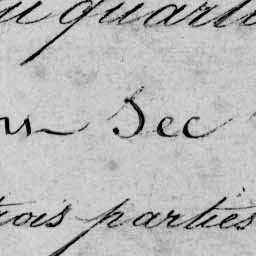 au quart
on Sec
trois parties